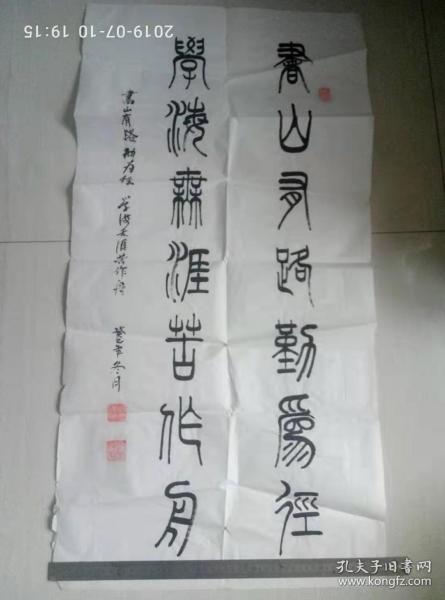 2019-07-10 19:15
書山有路勤為徑
學海無涯苦作舟
書山有路勤为径 学海无涯苦作舟
癸巳年冬月
孔夫子旧书网
www.kongfz.com